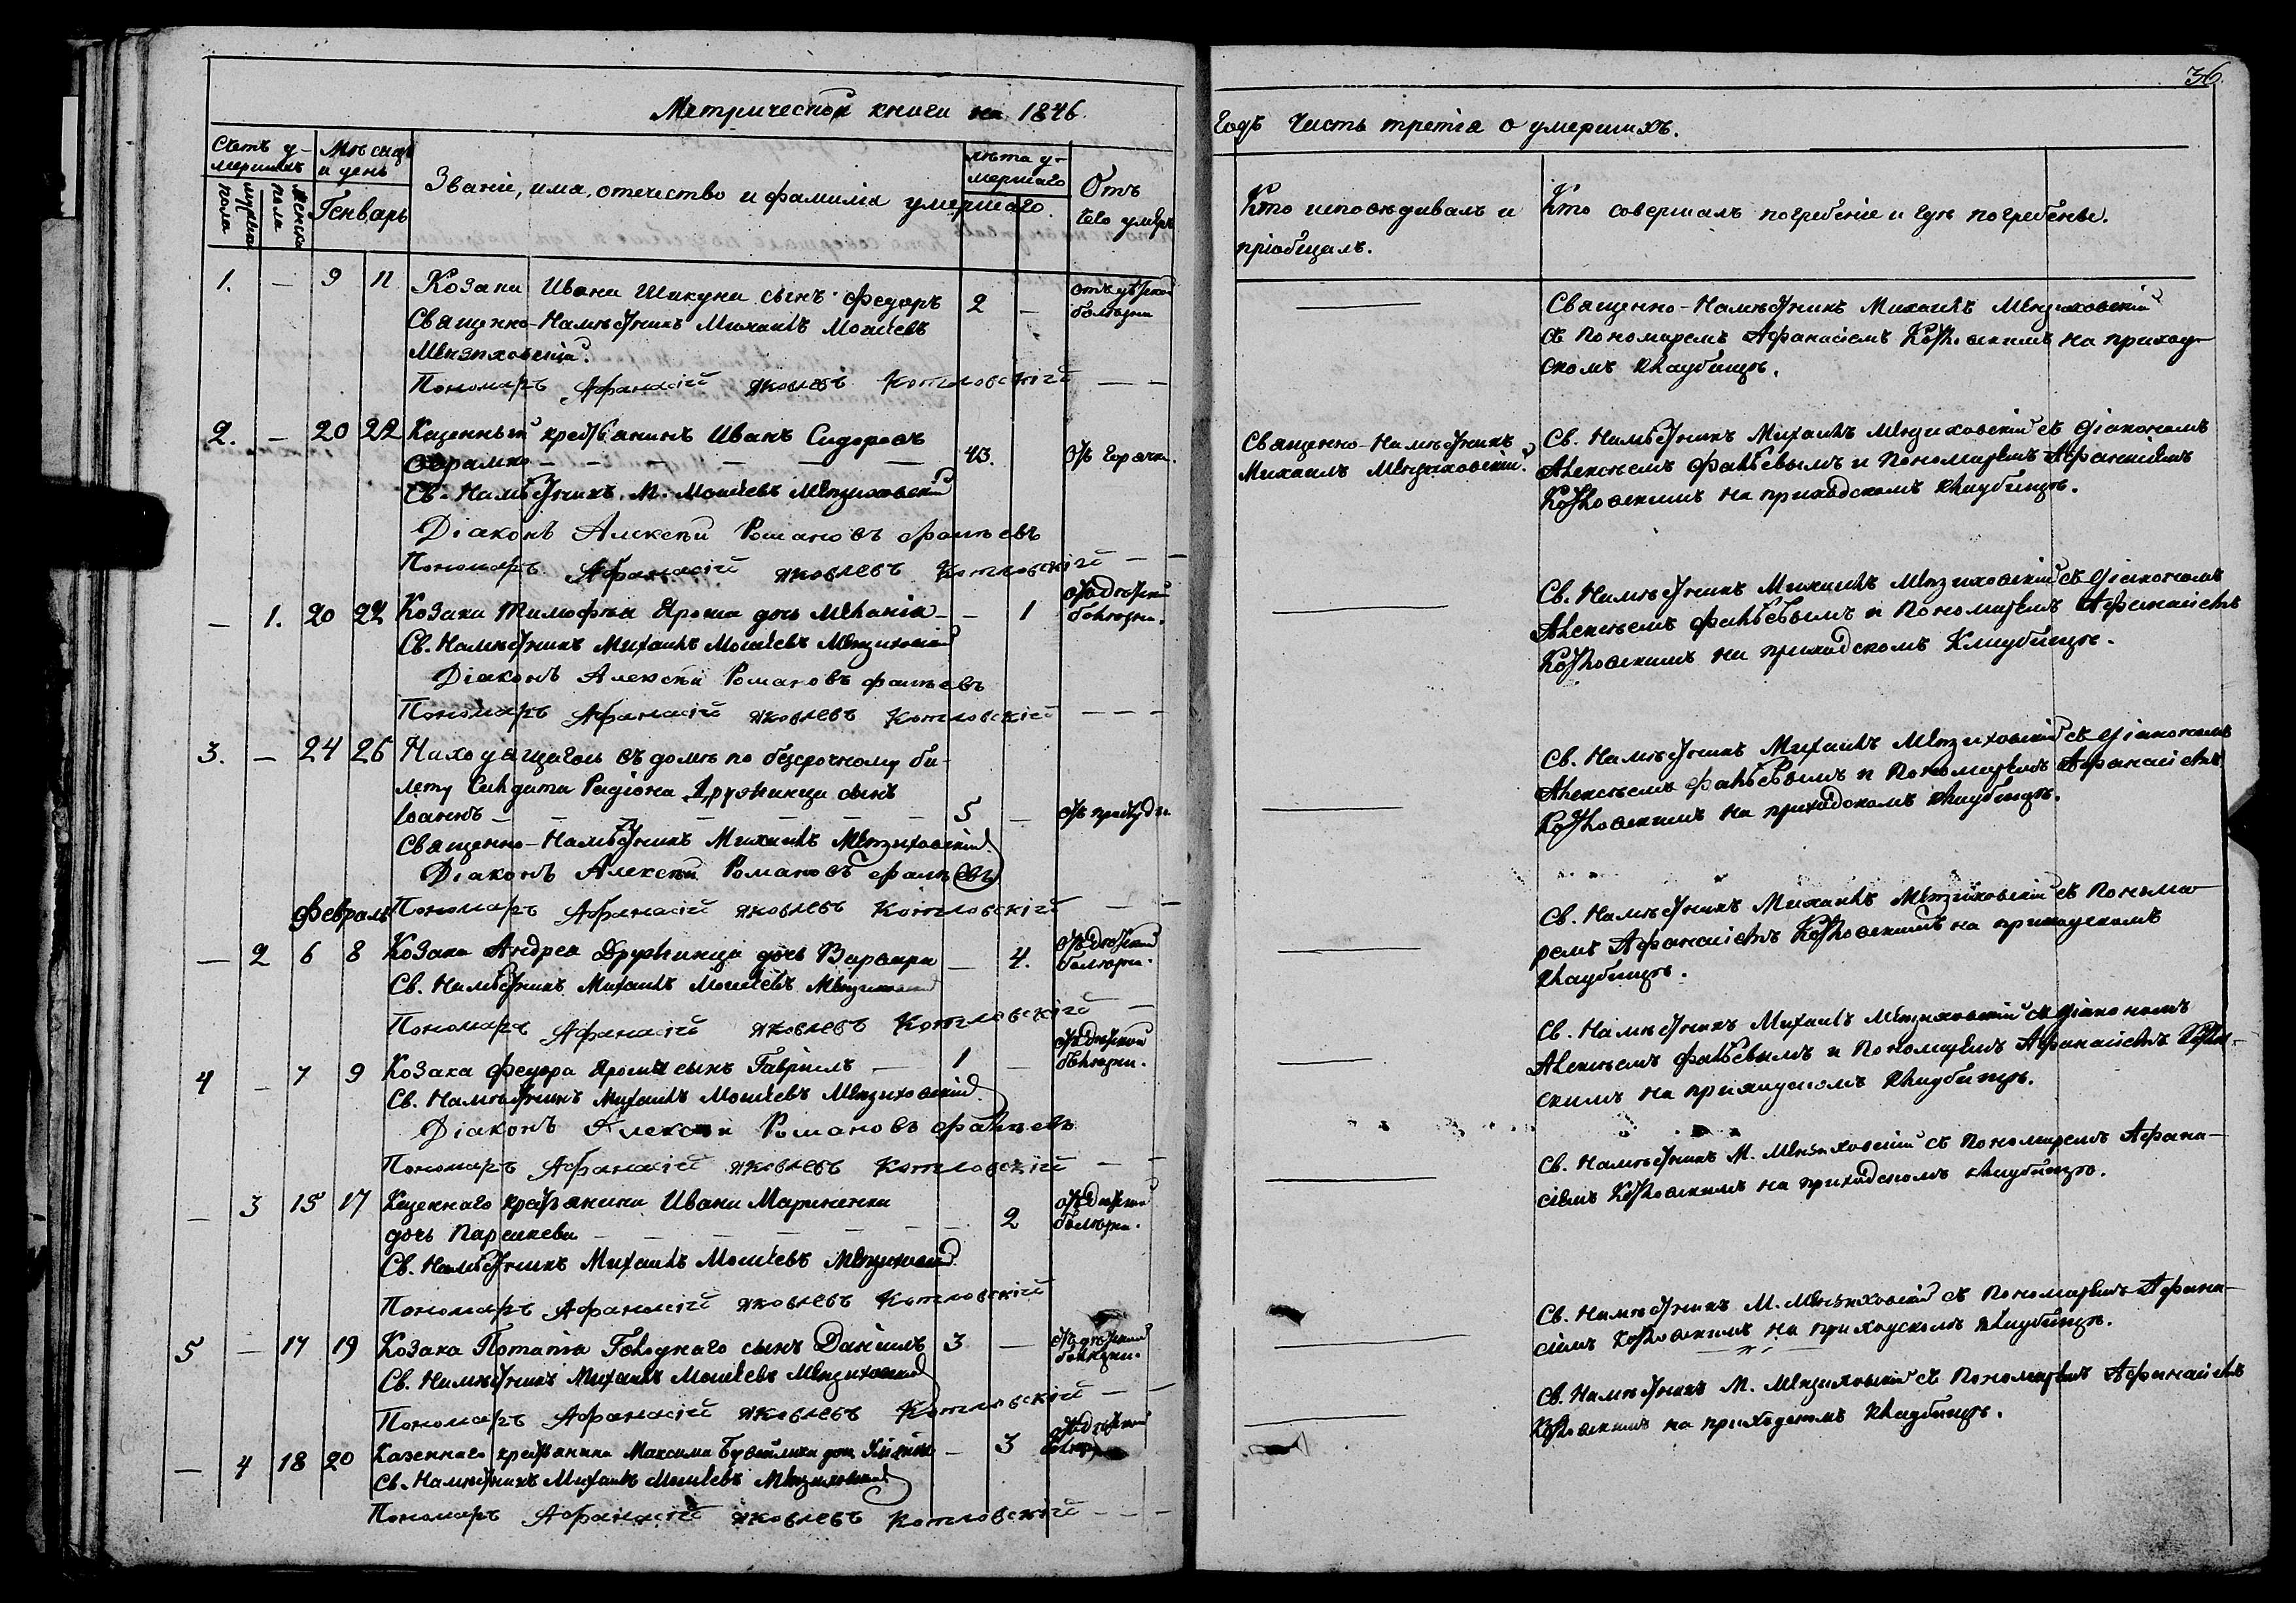 36.
Метрической книги на 1846.
Счетъ у-
мершихъ
мужеска
пола
женска
пола
Мѣсяцъ
и день
Генварь
Званіе, имя, отечество и фамилія умершаго.
лѣта у-
мершаго
Отъ
чего умеръ
1. — 9 11 Козака Ивана Шикуна сынъ Федоръ 2 —
болѣзни
Священно-Намѣстникъ Михаилъ Моисеевъ
Мензиховскій.
Пономаръ Афанасій Яковлевъ Котловскій — —
2. — 20 22 Казенный крестьянинъ Иванъ Сидоровъ
43. отъ горячк.
Св. Намѣстникъ М. Моисеевъ Мензиховскій
Діаконъ Алексѣй Романовъ Фалѣевъ
Пономаръ Афанасій Яковлевъ Котловскій — —
— 1. 20 22 Козака Тимофѣя Яроша дочь Меланія — — 1
отъ дѣтской
болѣзни.
Св. Намѣстникъ Михаилъ Моисеевъ Мензиховскій
Діаконъ Алексѣй Романовъ Фалѣевъ
Пономаръ Афанасій Яковлевъ Котловскій — — —
3. — 24 26 Находящагося въ домѣ по безсрочному би-
лету Солдата Радіона Дружинца сынъ
Іоаннъ — — — — — — 5 — отъ простуды
Священно-Намѣстникъ Михаилъ Мензиховскій
Діаконъ Алексѣй Романовъ Фалѣевъ
Февраль
Пономаръ Афанасій Яковлевъ Котловскій — —
— 2 6 8 Козака Андрея Дружинца дочь Варвара — 4.
отъ дѣтской
болѣзни.
Св. Намѣстникъ Михаилъ Моисеевъ Мензиховскій
Пономаръ Афанасій Яковлевъ Котловскій —
4 — 7 9 Козака Федора Яроша сынъ Гавріилъ — 1 —
отъ дѣтской
болѣзни.
Св. Намѣстникъ Михаилъ Моисеевъ Мензиховскій
Діаконъ Алексѣй Романовъ Фалѣевъ
Пономаръ Афанасій Яковлевъ Котловскій — —
— 3 15 17 Казеннаго крестьянина Ивана Мариненка
дочь Параскева — — — — — — 2
отъ дѣтской
болѣзни.
Св. Намѣстникъ Михаилъ Моисеевъ Мензиховскій
Пономаръ Афанасій Яковлевъ Котловскій
5 — 17 19 Козака Потапія Голоднаго сынъ Даніилъ 3 —
отъ дѣтской
болѣзни.
Св. Намѣстникъ Михаилъ Моисеевъ Мензиховскій
Пономаръ Афанасій Яковлевъ Котловскій — —
— 4 18 20 Казеннаго крестьянина Максима дочь — 3
отъ дѣтской
Св. Намѣстникъ Михаилъ Моисеевъ Мензиховскій
Пономаръ Афанасій Яковлевъ Котловскій — — —
Годъ Часть третія о умершихъ.
Кто исповѣдывалъ и
пріобщалъ.
Кто совершалъ погребеніе и гдѣ погребены.
Священно-Намѣстникъ Михаилъ Мензиховскій
съ Пономаремъ Афанасіемъ Котловскимъ на приход-
скомъ кладбищѣ.
Священно-Намѣстникъ
Михаилъ Мензиховскій.
Св. Намѣстникъ Михаилъ Мензиховскій съ Діакономъ
Алексѣемъ Фалѣевымъ и Пономаремъ Афанасіемъ
Котловскимъ на приходскомъ кладбищѣ.
Св. Намѣстникъ Михаилъ Мензиховскій съ Діакономъ
Алексѣемъ Фалѣевымъ и Пономаремъ Афанасіемъ
Котловскимъ на приходскомъ Кладбищѣ.
Св. Намѣстникъ Михаилъ Мензиховскій съ Діакономъ
Алексѣемъ Фалѣевымъ и Пономаремъ Афанасіемъ
Котловскимъ на приходскомъ кладбищѣ.
Св. Намѣстникъ Михаилъ Мензиховскій съ Понома-
ремъ Афанасіемъ Котловскимъ на приходскомъ
кладбищѣ.
Св. Намѣстникъ Михаилъ Мензиховскій съ Діакономъ
Алексѣемъ Фалѣевымъ и Пономаремъ Афанасіемъ Котлов-
скимъ на приходскомъ кладбищѣ.
Св. Намѣстникъ М. Мензиховскій съ Пономаремъ Афана-
сіемъ Котловскимъ на приходскомъ кладбищѣ.
Св. Намѣстникъ М. Мензиховскій съ Пономаремъ Афана-
сіемъ Котловскимъ на приходскомъ кладбищѣ.
Св. Намѣстникъ М. Мензиховскій съ Пономаремъ Афанасіемъ
Котловскимъ на приходскомъ кладбищѣ.